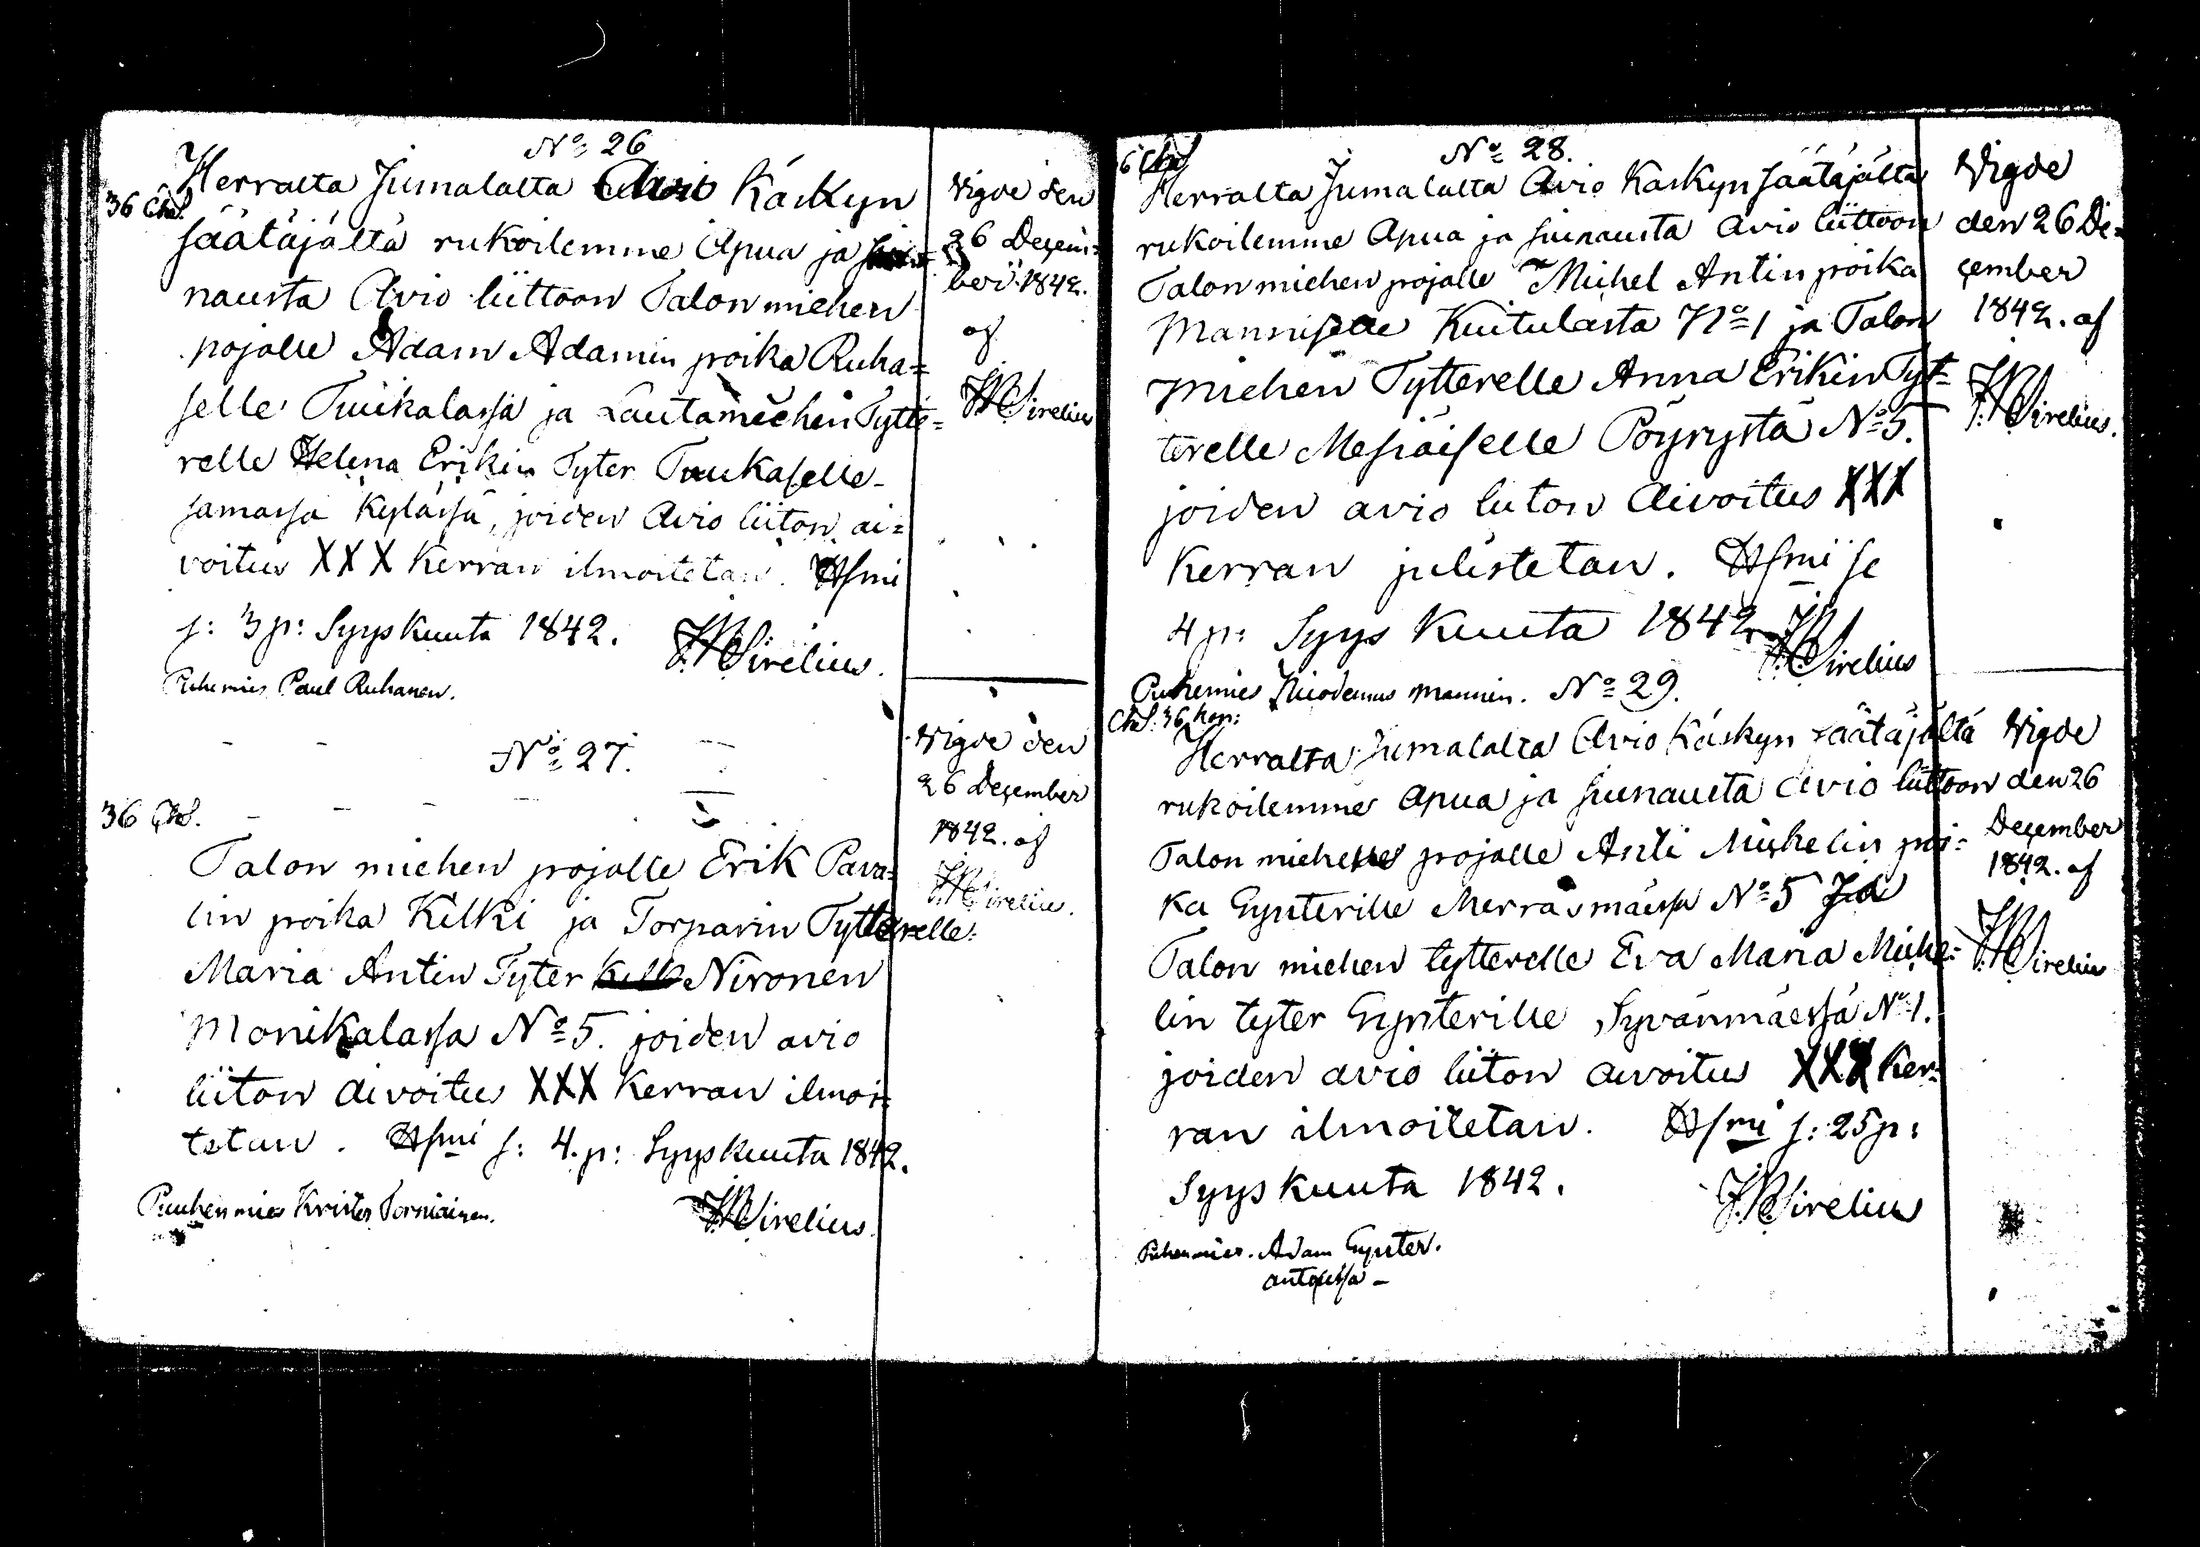 No 26
Herralta Jumalalta Avio Käskyn
36 Chs.
säätäjältä rukoilemme Apua ja siu=
nausta Avio liittoon Talon miehen
pojalle Adam Adamin poika Ruha=
selle Tuukalassa ja Lautamiehen Tytte=
relle Helena Erikin Tyter Tuukaselle
samassa Kylässä, joiden Avio liiton ai=
voitus XXX Kerran ilmoitetan. Hsmi
s: 3 p: Syys Kuuta 1842. Sirelius.
Puhemies Paul Ruhanen.
Vigde den
26 Decem=
ber 1842.
af
Sirelius
No 27.
36 Chs.
Talon miehen pojalle Erik Pava=
lin poika Kilki ja Torparin Tytterelle
Maria Antin Tyter Nironen
Monikalassa No 5. joiden avio
liiton aivoitus XXX Kerran ilmoi=
tetan. Hsmi s: 4. p: Syyskuuta 1842.
Puuhenmies Krister Torniainen. Sirelius.
Vigde den
26 December
1842. af
Sirelius.
No 28.
6 Chs
Herralta Jumalalta Avio Käskyn säätäjältä
rukoilemme Apua ja siunausta Avio liittoon
Talon miehen pojalle Michel Antin poika
Manniselle Kuitulasta No 1 ja Talon
miehen Tytterelle Anna Erikin Tyt=
terelle Mesiäiselle Pöyrystä No 5.
joiden avio liiton Aivoitus XXX
Kerran julistetan. Hsmi se
4 p: Syys Kuuta 1842 Sirelius
Puhemies Nicodemus Mannin.
Vigde
den 26 De=
cember
1842. af
Sirelius.
No 29.
Chs. 36 kop:
Herralta Jumalalta Avio Käskyn säätäjältä
rukoilemme apua ja siunausta Avio liittoon
Talon miehen pojalle Anti Michelin poi=
ka Gynterille Merrasmäessä No 5 Ja
Talon miehen tytterelle Eva Maria Miche=
lin tyter Gynterille Syvänmäessä No 1.
joiden avio liiton aivoitus XXX Ker=
ran ilmoitetan. Hsmi s: 25 p:
Syys Kuuta 1842. Sirelius
Puhenmies. Adam Gynter.
Vigde
den 26
December
1842. af
Sirelius